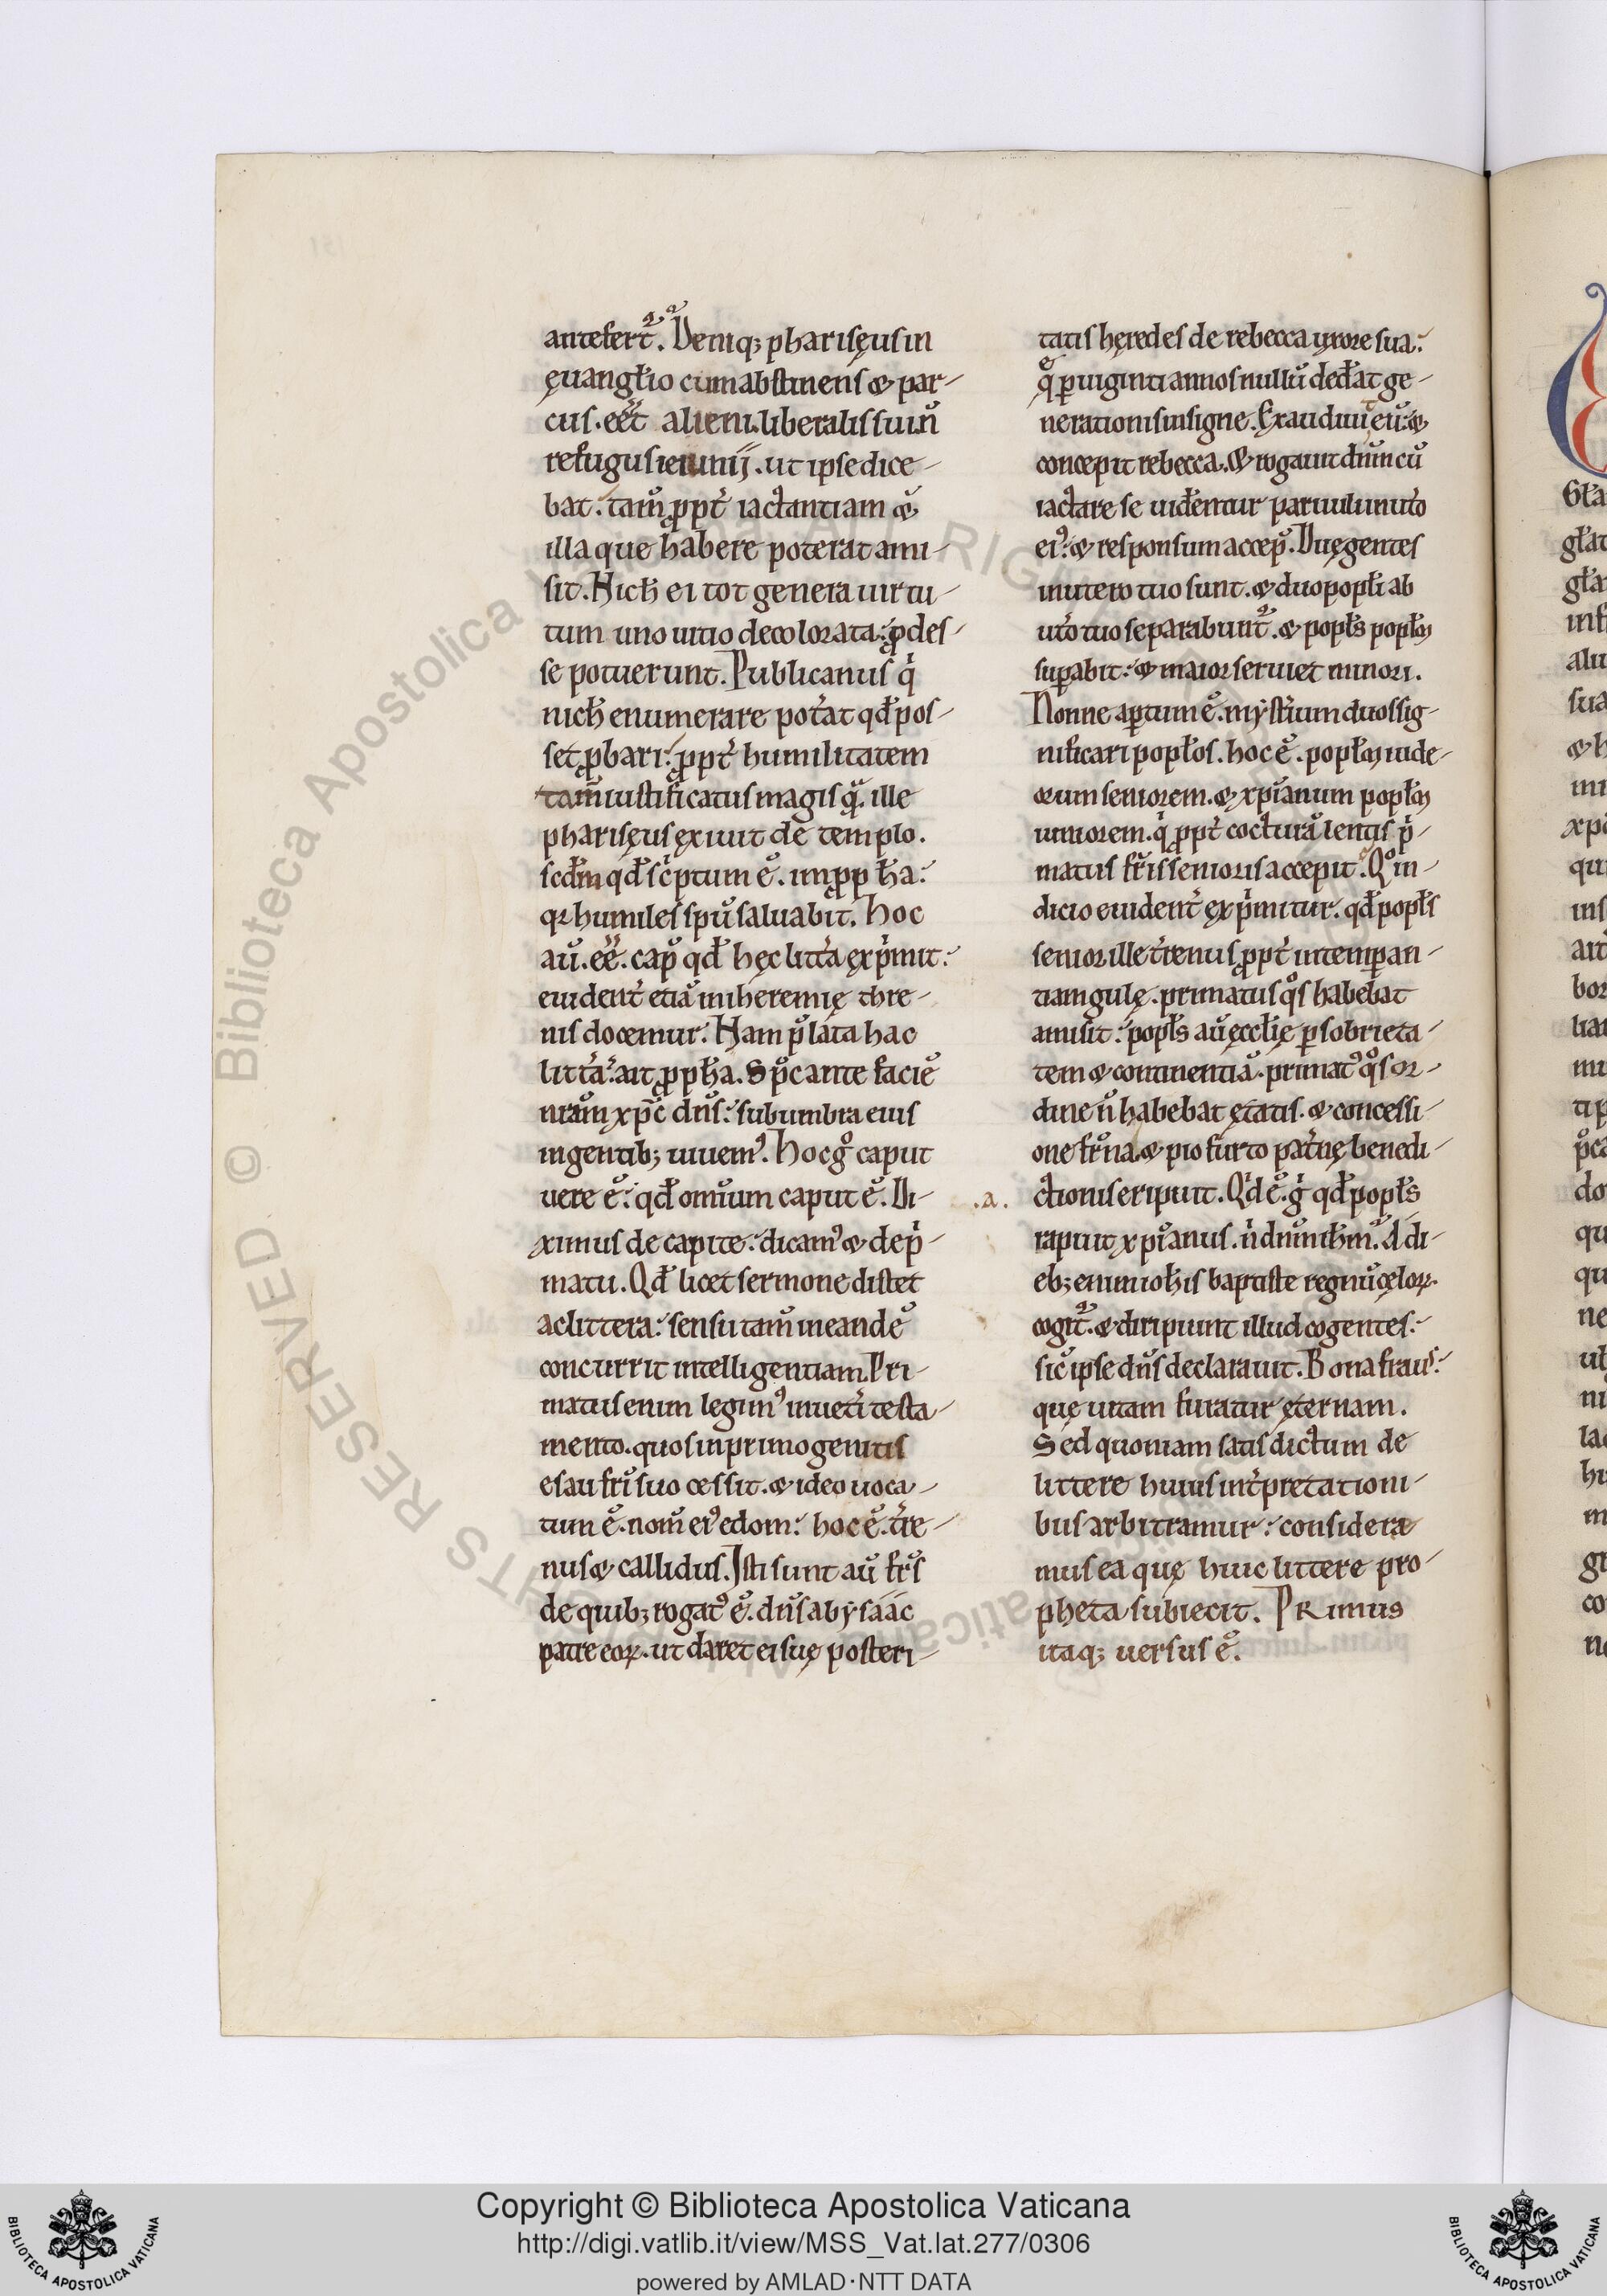 antefert᷑. Deniq; pharisęus in
ęuangl̄io cum abstinens & par-
cus. eēt alieni. liberalis sui. n̄
refugus ieiunij. ut ipse dice-
bat. tam̄ ꝓpt̄ iactantiam &
illa que habere poterat ami-
sit. Nich̄ ei tot genera uirtu-
tum uno uitio decolorata ꝓdes-
se potuerunt. Publicanus q̇
nich̄ enumerare pot̄at qd̄ pos-
set ꝓbari: ꝓpt̄ humilitatem
tam̄ iustificatus magis q̄. ille
pharisęus exiuit de templo.
scd̄m qd̄ sc̄ptum ē. in ꝓph̄a:
qꝛ humiles spū saluabit. Hoc
aū. eē. cap̄ qd̄ hęc litt̄a exp̄mit:
euident̄ etiā in heremię thre-
nis docemur. Nam p̄lata hac
litt̄a: ait ꝓph̄a. Sp̄c ante faciē
nrām xp̄c dn̄s: sub umbra eius
in gentib; uiuemꝰ. Hoc g° caput
uere ē: qd̄ omīum caput ē. Di-
ximus de capite: dicamꝰ & de p̄-
matu. Qd̄ licet sermone distet
ac littera: sensu tam̄ in eandē
concurrit intelligentiam. Pri-
matus enim legimꝰ in uet̄i testa-
mento. quos in primogenitis
esau frī suo cessit. & ideo uoca-
tum ē. nom̄ eiꝰ edom: hoc ē. t̄re-
nus & callidus. Isti sunt aū fr̄s
de quib; rogatꝰ ē. dn̄s ab ysaac
patre eoꝝ. ut daret ei suę posteri-
tatis hęredes de rebecca uxore sua:
q̄ ꝑ uiginti annos nullū ded̄at ge-
nerationis insigne. Exaudiuit eū: &
concepit rebecca. & rogauit dn̄m cū
iactare se uid̄entur paruuli in ut̄o
eiꝰ: & responsum accep̄. Duę gentes
in utero tuo sunt. & duo popl̄i ab
ut̄o tuo separabunt᷑. & popl̄s popl̄m
suꝑabit: & maior seruiet minori.
Nonne aꝑtum ē. myst̄ium duos sig-
nificari popl̄os. hoc ē. popl̄m iude-
orum seniorem. & xp̄ianum popl̄m
iuniorem. q̇ ꝓpt̄ cocturā lentis p̄-
matus fr̄is senioris accepit. Q° in-
dicio euident̄ exp̄mitur. qd̄ popl̄s
senior ille t̄renus ꝓpt̄ intemꝑan-
tiam gulę. primatus q°s habebat
amisit: popl̄s aū ęccl̄ię ꝑ sobrieta-
tem & continentiā. primatꝰ q°s or-
dine n̄ habebat ętatis. & concessi-
one fr̄na. & pio furto pat̄nę benedi-
.a. ctionis eripuit. Qd̄ ē. g̊ qd̄ popl̄s
rapuit xp̄ianus. n̄ dn̄m ih̄m. A di-
eb; enim ioh̄is baptiste regnū cęloꝝ.
cogit᷑. & diripiunt illud cogentes:
sic̄ ipse dn̄s declarauit. Bona fraus:
que uitam furatur ęternam.
Sed quoniam satis dictum de
littere huius int̄pretationi-
bus arbitramur: considera-
mus ea quę huic littere pro-
pheta subiecit. Primus
itaq; uersus ē.
Copyright © Biblioteca Apostolica Vaticana
http://digi.vatlib.it/view/MSS_Vat.lat.277/0306
powered by AMLAD·NTT DATA